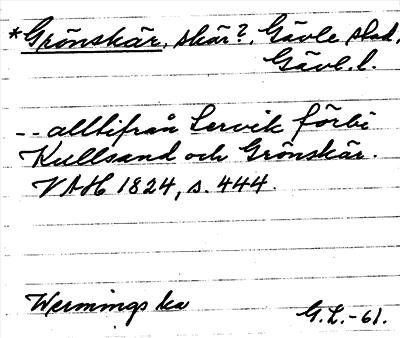 *Grönskär, skär?, Gävle stad,
Gävl. l.
-- alltifrån Lervik förbi
Kullsand och Grönskär.
VAH 1824, s. 444.
Wermings ka
G.L.-61.